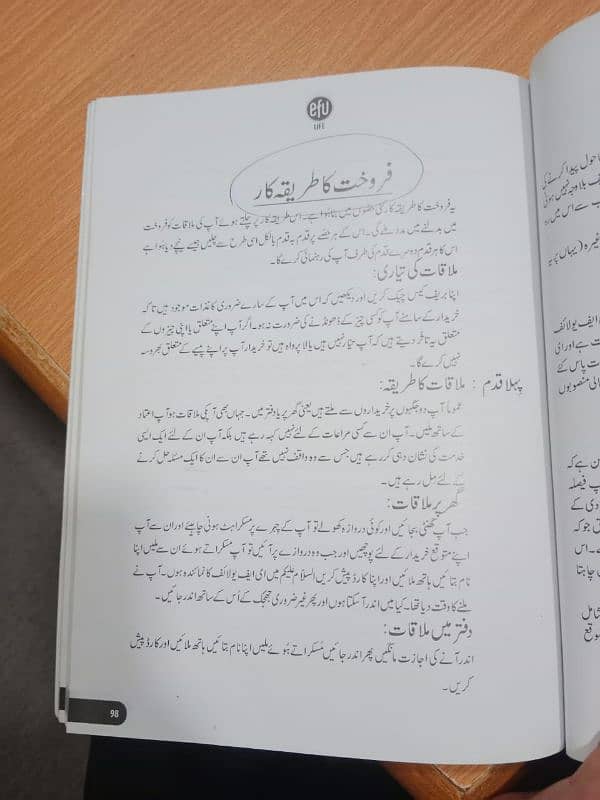 efu
LIFE
فروخت کا طریقہ کار
یہ فروخت کا طریقہ کار کئی حصّوں میں بٹا ہوا ہے۔ اس طریقہ کار پر چلتے ہوئے آپ کی ملاقات کو فروخت
میں بدلنے میں مدد ملے گی۔ اس کے ہر حصّے پر قدم بہ قدم بالکل اسی طرح سے چلیں جیسے نیچے دیا ہوا ہے
اس کا ہر قدم دوسرے قدم کی طرف آپ کی رہنمائی کرے گا۔
ملاقات کی تیاری:
اپنا بریف کیس چیک کریں اور دیکھیں کہ اس میں آپ کے سارے ضروری کاغذات موجود ہیں تاکہ
خریدار کے سامنے آپ کو کسی چیز کے ڈھونڈنے کی ضرورت نہ ہو۔ اگر آپ اپنے متعلق یا اپنی چیزوں کے
متعلق یہ تاثر دیتے ہیں کہ آپ تیار نہیں ہیں یا لا پرواہ ہیں تو خریدار آپ پر اپنے پیسے کے متعلق بھروسہ
نہیں کرے گا۔
پہلا قدم : ملاقات کا طریقہ:
عموماً آپ دو جگہوں پر خریداروں سے ملتے ہیں یعنی گھر پر یا دفتر میں۔ جہاں بھی آپکی ملاقات ہو آپ اعتماد
کے ساتھ ملیں۔ آپ ان سے کسی مراعات کے لئے نہیں کہہ رہے ہیں بلکہ آپ ان کے لئے ایک ایسی
خدمت کی نشان دہی کر رہے ہیں جس سے وہ واقف نہیں تھے آپ ان سے ان کا ایک مسئلہ حل کرنے
کے لئے مل رہے ہیں۔
گھر پر ملاقات:
جب آپ گھنٹی بجائیں اور کوئی دروازہ کھولے تو آپ کے چہرے پر مسکراہٹ ہونی چاہئے اور ان سے آپ
اپنے متوقع خریدار کے لئے پوچھیں اور جب وہ دروازے پر آئیں تو آپ مسکراتے ہوئے ان سے ملیں اپنا
نام بتائیں ہاتھ ملائیں اور اپنا کارڈ پیش کریں السلام علیکم میں ای ایف یو لائف کا نمائندہ ہوں۔ آپ نے
ملنے کا وقت دیا تھا۔ کیا میں اندر آ سکتا ہوں اور پھر غیر ضروری جھجک کے اُس کے ساتھ اندر جائیں۔
دفتر میں ملاقات:
اندر آنے کی اجازت مانگیں پھر اندر جائیں مسکراتے ہوئے ملیں اپنا نام بتائیں ہاتھ ملائیں اور کارڈ پیش
کریں۔
98
ماحول پیدا کرنے کی
بلاوجہ نہیں ہوتی
سے اس میں
وغیرہ (یہاں پر یہ
ایف یو لائف
ہے اور ای
پاس کئے
منصوبوں
ان ہے کہ
فیصلہ
دی کے
جو کہ
اس
چاہتا
شامل
توقع